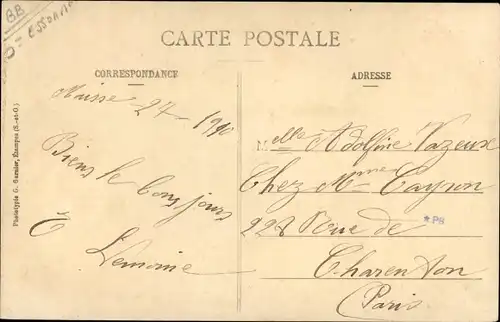 BB
D = ESSONNE
CARTE POSTALE
CORRESPONDANCE
ADRESSE
Maisse 27 - 1910
Biens le bons jours
Lemoine
Melle Adolfine Vazeux
Chez Mme Cayron
228 Rue de
Charenton
(Paris)
*PB
Phototypie G. Garnier, Étampes (S.-et-O.)